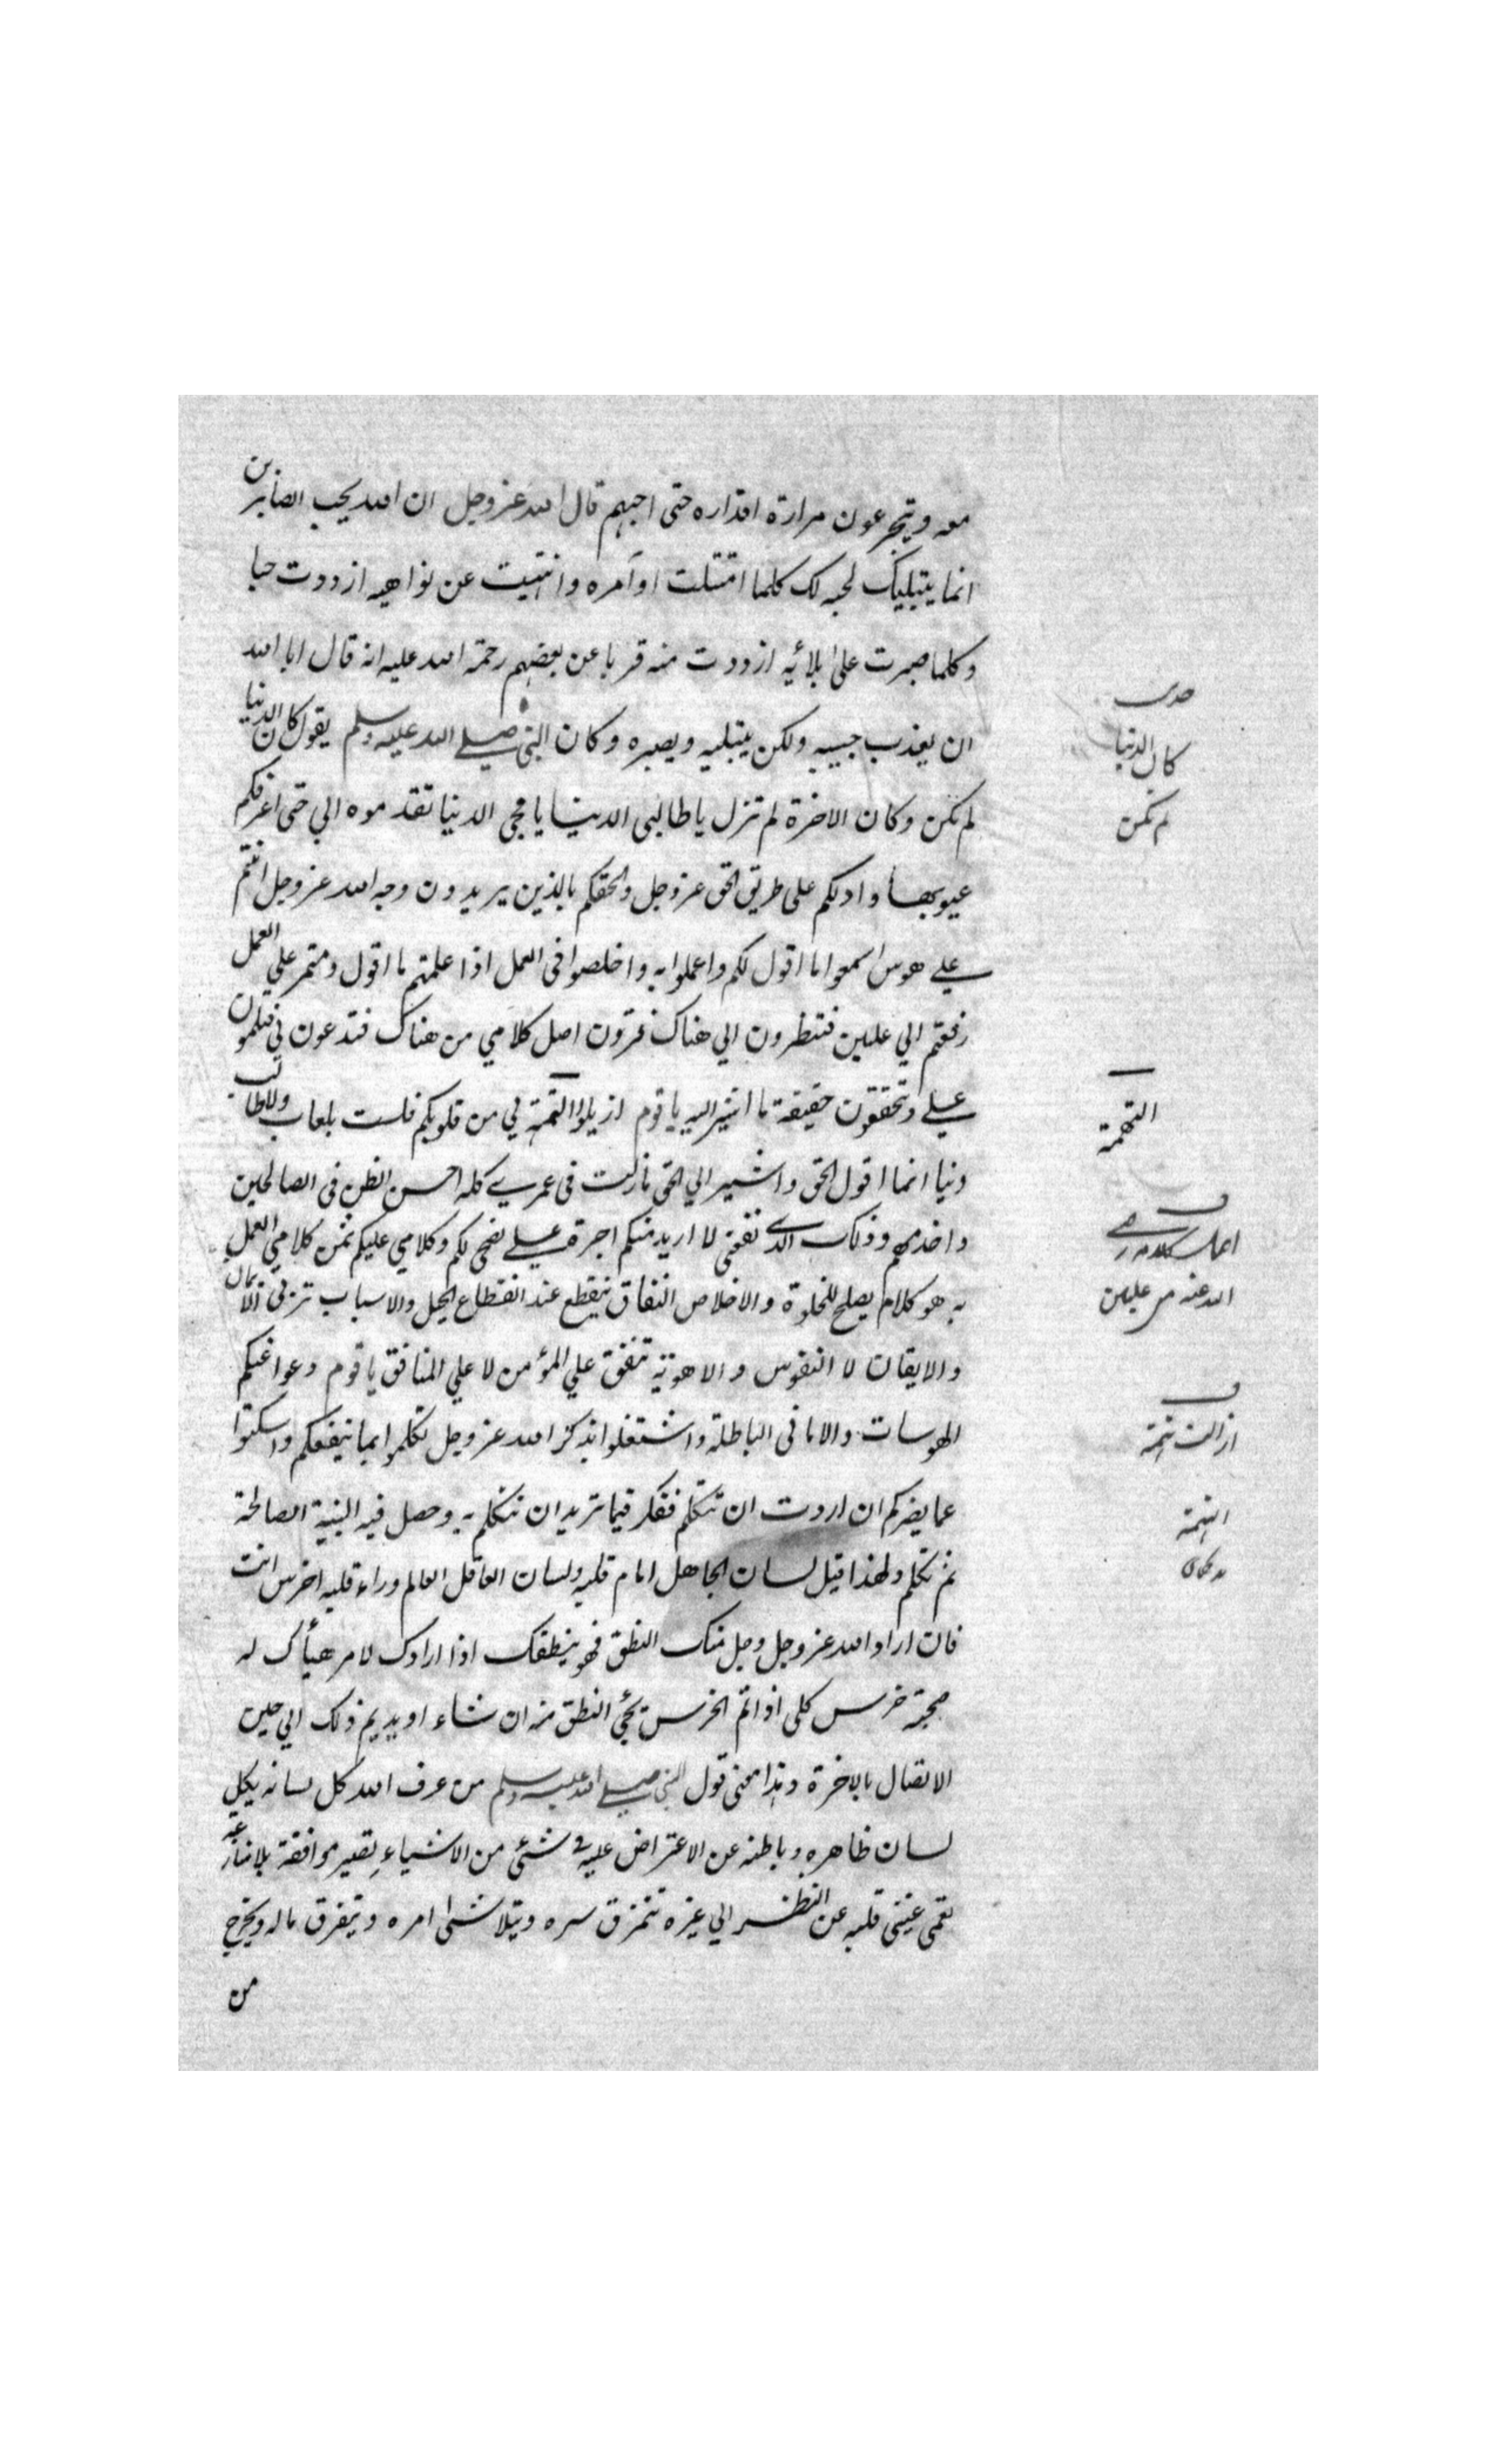 معه ويتجرعون مرارة اقداره حتى احبهم قال الله عز وجل ان الله يحب الصابرين
انما يبتليك لحبه لك كلما امتثلت اوآمره وانتهيت عن نواهيه ازددت حبا
وكلما صبرت على بلائيه ازددت منه قربا عن بعضهم رحمة الله عليه انه قال ابا الله
ان يعذب حبيبه ولكن يبتليه ويصبره وكان النبي صلى الله عليه وسلم يقول كان الدنيا
لم تكن وكان الاخرة لم تزل يا طالبى الدنيا يا محبي الدنيا تقدموه الي حتى اعرفكم
عيوبها وادلكم على طريق الحق عز وجل والحقكم بالذين يريدون وجه الله عز وجل انتم
على هوس اسمعوا ما اقول لكم واعملوا به واخلصوا فى العمل اذا علمتم ما اقول ومتم علي العمل
رفعتم الي عليين فتنظرون الي هناك فترون اصل كلامي من هناك فتدعون لي فتلمون
على وتحققون حقيقة ما اشير اليه يا قوم ازيلوا التهمة لي من قلوبكم فلست بلعاب ولا طالب
دنيا انما اقول الحق واشير الي الحق مازلت فى عمري كله احسن الظن فى الصالحين
واخدمهم وذلك الذى نفعنى لا اريد منكم اجرة على نصحى لكم وكلامي عليكم ثمن كلامي العمل
به هو كلام يصلح للخلوة والاخلاص النفاق ينقطع عند انقطاع الحيل والاسباب تربى الايمان
والايقان لا النفوس والاهوية تنفق علي المؤمن لا علي المنافق يا قوم دعوا عنكم
الهوسات والامانى الباطلة واشتغلوا بذكر الله عز وجل تكلموا بما ينفعكم واسكتوا
عما يضركم ان اردت ان تتكلم ففكر فيما تريد ان تتكلم به وحصل فيه النية الصالحة
ثم تكلم ولهذا قيل لسان الجاهل امام قلبه ولسان العاقل العالم وراء قلبه اخرس انت
فان اراد الله عز وجل وجل منك النطق فهو ينطقك اذا ارادك لامر هيأك له
صحبته خرس كلى اذ اتم الخرس يجئ النطق منه ان شاء او يديم ذلك الي حين
الاتصال بالاخرة وهذا معنى قول النبي صلى الله عليه وسلم من عرف الله كل لسانه يكل
لسان ظاهره وباطنه عن الاعتراض عليه فى شئى من الاشياء تصير موافقة بلا منازعة
تعمى عينى قلبه عن النظر الي غيره تتمزق سره ويتلاشى امره ويتفرق ماله ويخرج
من
كان الدنيا
لم تكن
التهمة
الله عنه من عليين